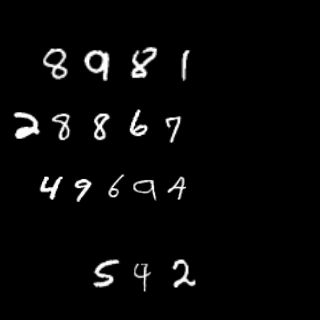 8981
28867
49694
542